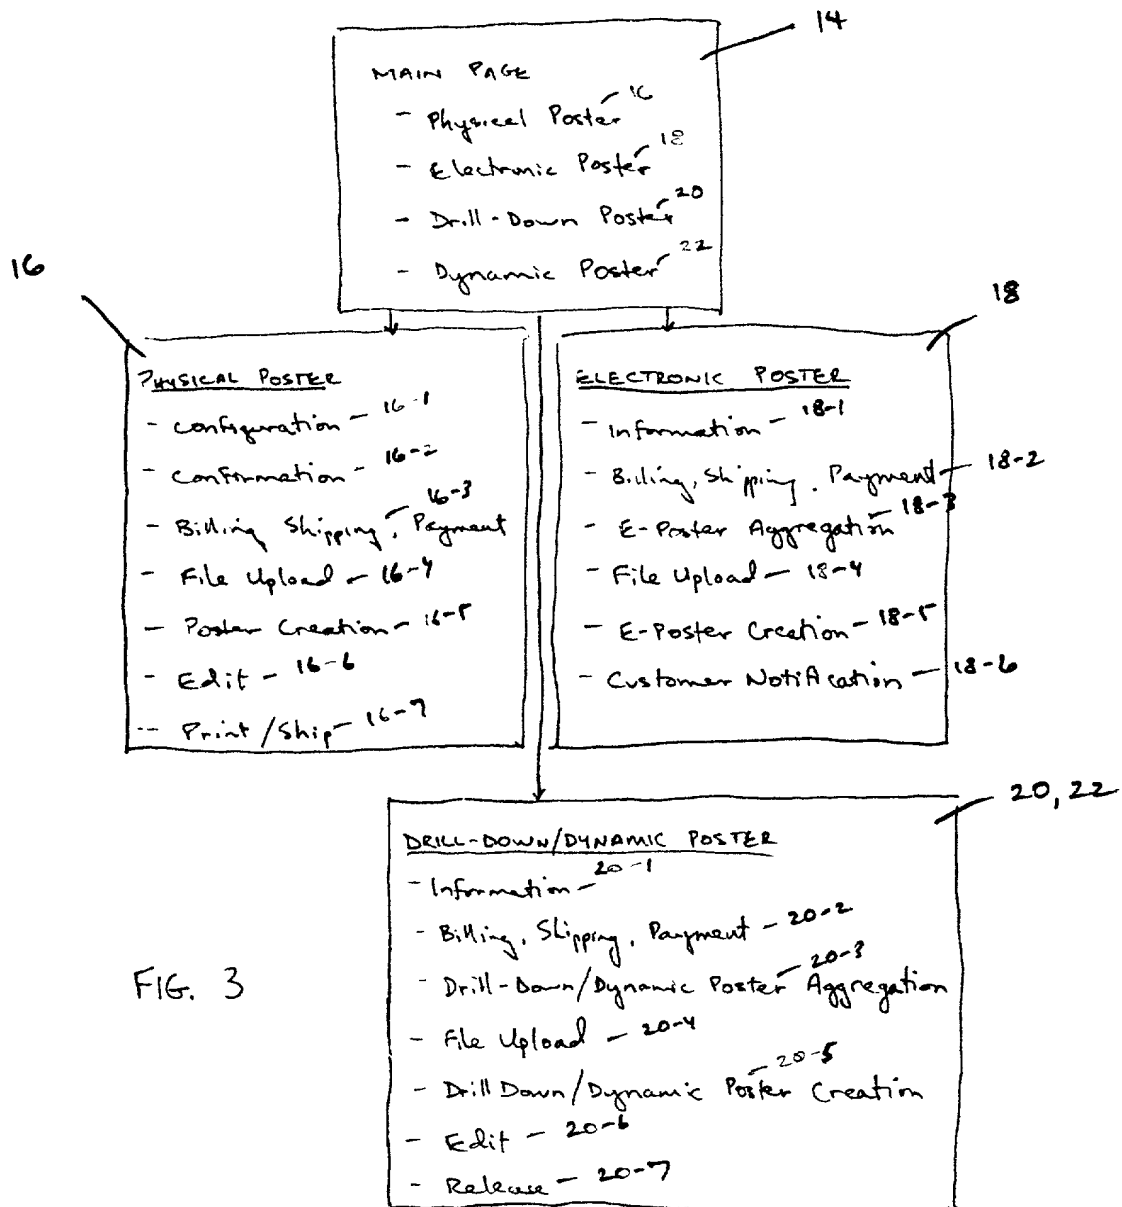 14
MAIN PAGE
- Physical Poster 16
- Electronic Poster 18
- Drill-Down Poster 20
- Dynamic Poster 22
16
PHYSICAL POSTER
- Configuration - 16-1
- Confirmation - 16-2
- Billing, Shipping, Payment 16-3
- File Upload - 16-4
- Poster Creation - 16-5
- Edit - 16-6
- Print/Ship - 16-7
18
ELECTRONIC POSTER
- Information - 18-1
- Billing, Shipping, Payment - 18-2
- E-Poster Aggregation 18-3
- File Upload - 18-4
- E-Poster Creation - 18-5
- Customer Notification - 18-6
20, 22
DRILL-DOWN/DYNAMIC POSTER
- Information - 20-1
- Billing, Shipping, Payment - 20-2
- Drill-Down/Dynamic Poster Aggregation 20-3
- File Upload - 20-4
- Drill Down/Dynamic Poster Creation 20-5
- Edit - 20-6
- Release - 20-7
FIG. 3